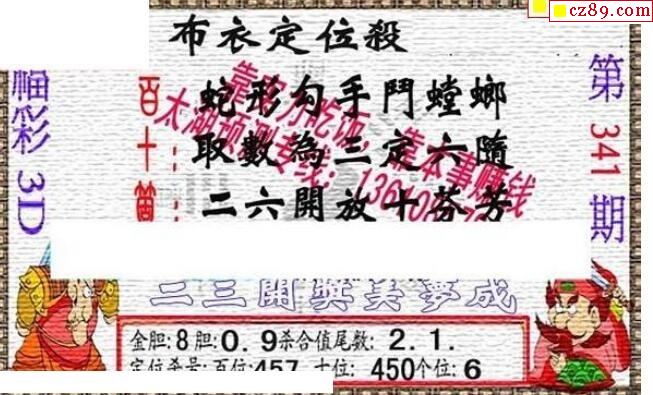 cz89.com
布衣定位殺
福彩3D
第341期
百十箇
蛇形勾手鬥螳螂
取數為三定六隨
二六開放十芬芳
靠实力吃饭,靠本事赚钱
太湖预测专线:
二三開獎美夢成
金胆:8胆:0.9杀合值尾数:2.1.
定位杀号:百位:457 十位:450个位:6